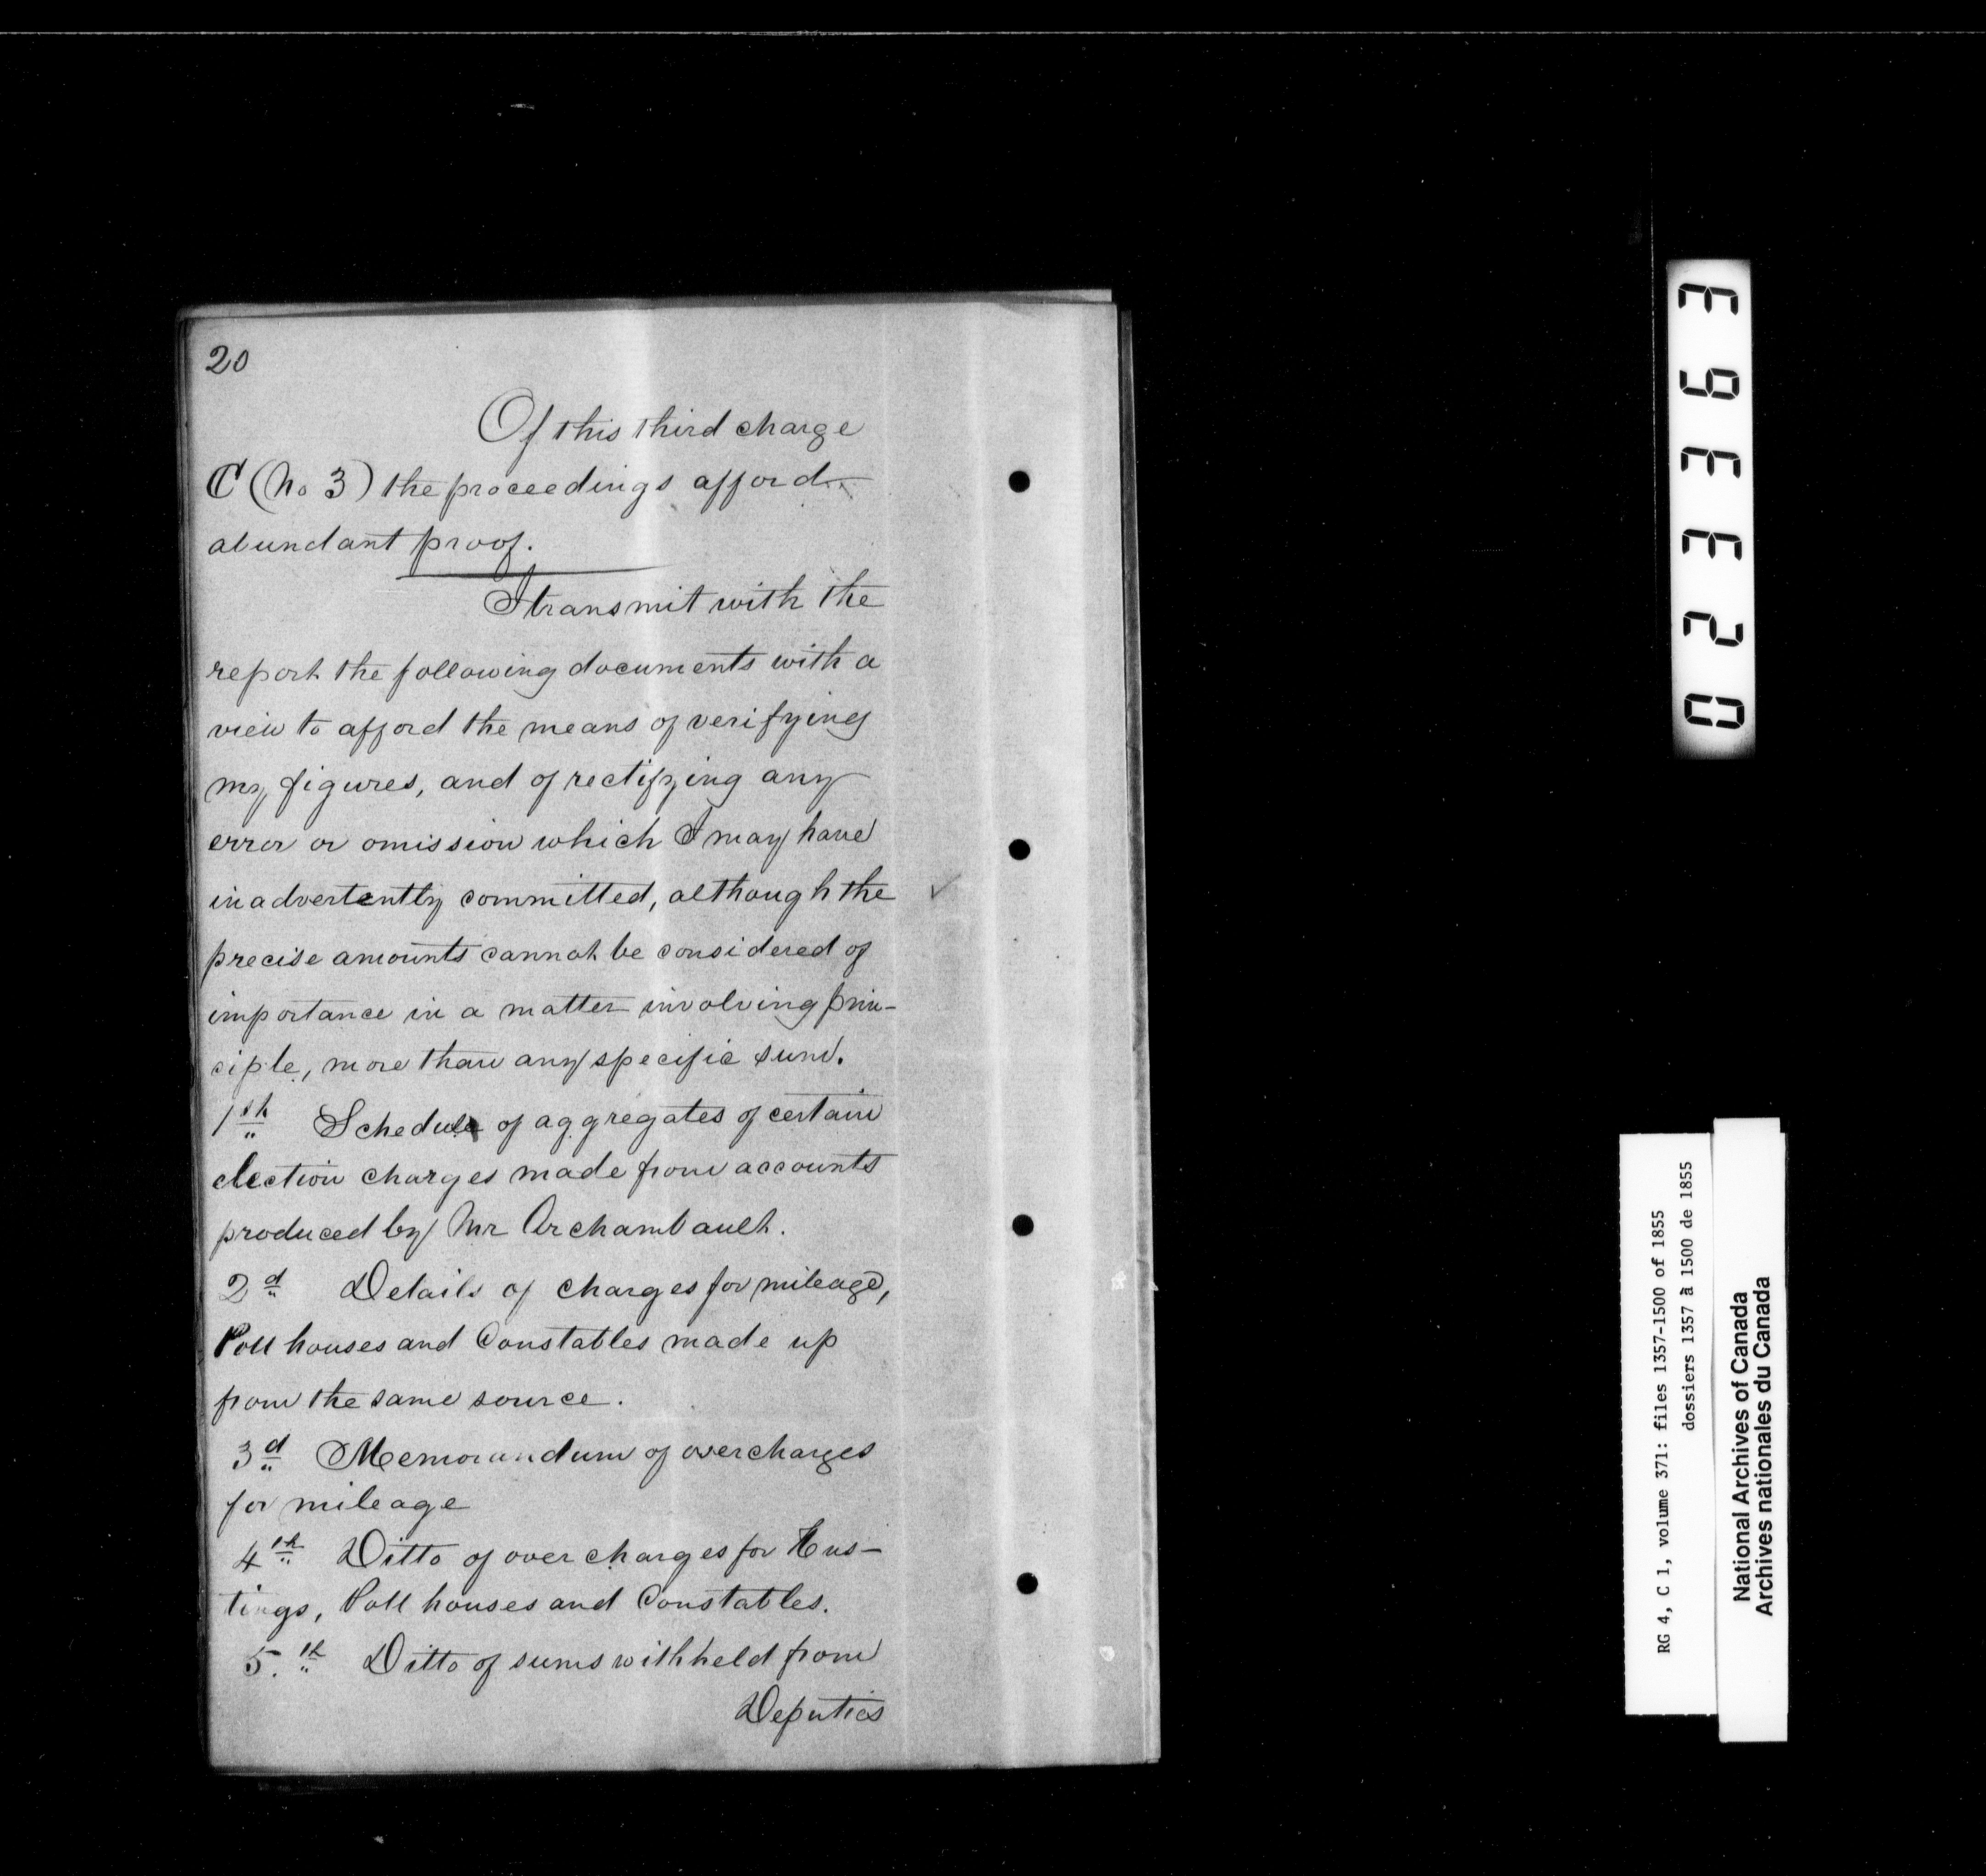 20
Of this third charge
C (No 3) the proceedings afford
abundant proof.
I transmit with the
report the following documents with a
view to afford the means of verifying
my figures, and of rectifying any
error or omission which I may have
inadvertently committed, although the
precise amounts cannot be considered of
importance in a matter involving prin-
ciple, more than any specific sum.
1st Schedule of aggregates of certain
election charges made from accounts
produced by Mr Archambault.
2d Details of charges for mileage,
Poll houses and Constables made up
from the same source.
3d Memorandum of overcharges
for mileage
4th Ditto of over charges for Hus-
tings, Poll houses and Constables.
5.th Ditto of sums withheld from
Deputies
023363
RG 4, C 1, volume 371: files 1357-1500 of 1855
dossiers 1357 à 1500 de 1855
National Archives of Canada
Archives nationales du Canada